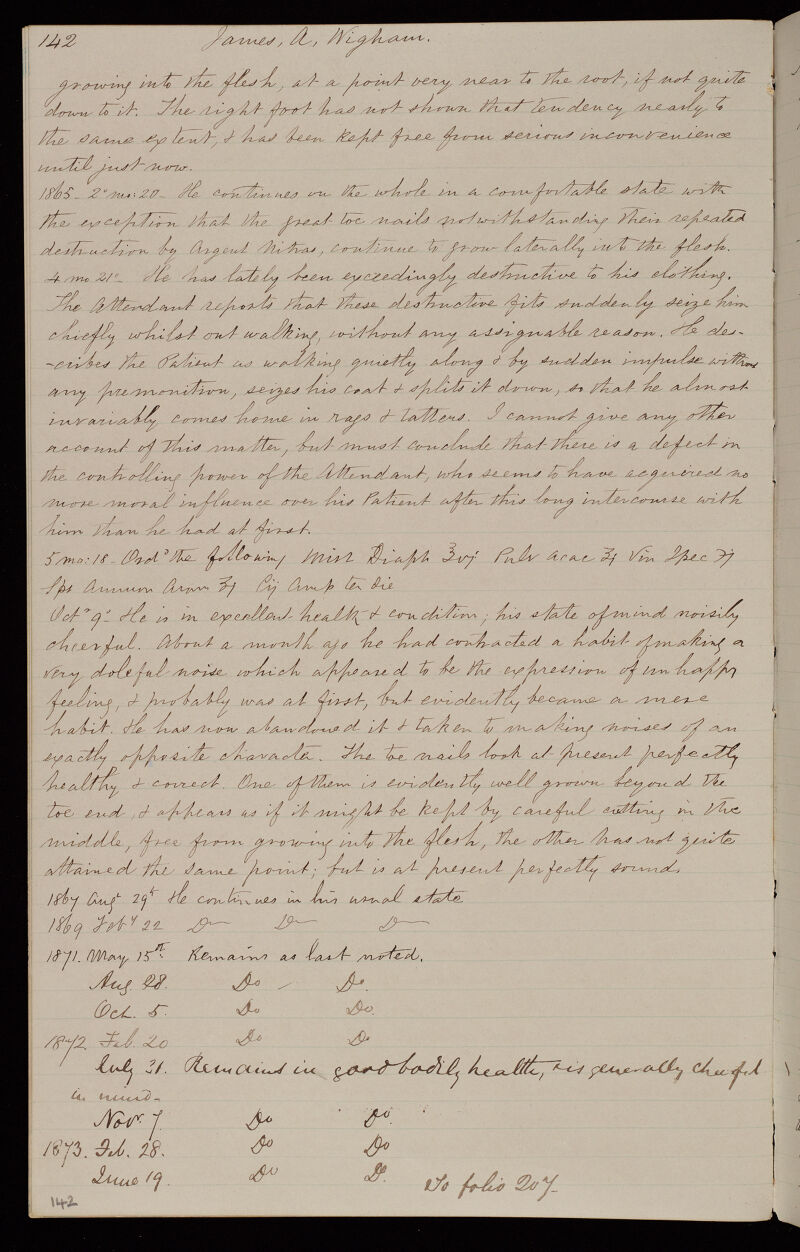 142 James, A, Wigham.
growing into the flesh, at a point very near to the root, if not quite
down to it. The right foot has not shown that tendency nearly to
the same extent, & has been kept free from serious inconvenience
until just now.
1865 - 2d mo: 20 - He continues on the whole in a comfortable state with
the exception that the great toe nails notwithstanding their repeated
destruction by Argent Nitras, continue to grow laterally into the flesh.
4 mo 21 - He has lately been exceedingly destructive to his clothing.
The Attendant reports that these destructive fits suddenly seize him
chiefly whilst out walking, without any assignable reason. He des-
-cribes the Patient as walking quietly along & by sudden impulse without
any premonition, seizes his coat & splits it down, so that he almost
invariably comes home in rags & tatters. I cannot give any other
account of this matter, but must conclude that there is a defect in
the controlling power of the Attendant, who seems to have acquired no
more moral influence over his Patient after this long intercourse with
him than he had at first.
5 mo: 18 - Ordd the following Mist Diaph ʒvj Pulv Acac Vin Ipec
Sps Ammon Arom Cij Amp ter die
Octr 9 - He is in excellent health & condition; his state of mind noisily
cheerful. About a month ago he had contracted a habit of making a
very doleful noise which appeared to be the expression of unhappy
feeling, & probably was at first, but evidently became a mere
habit. He has now abandoned it & taken to making noises of an
exactly opposite character. The toe nails look at present perfectly
healthy & correct. One of them is evidently well grown beyond the
toe end, & appears as if it might be kept by careful cutting in the
middle, free from growing into the flesh, the other has not quite
attained the same point; but is at present perfectly sound.
1867 Augt 29th He continues in his usual state
1869 Feby 22 Do Do Do
1871. May 15th. Remains as last noted.
Aug. 28. Do - Do.
Oct. 5. Do Do.
1872 Feb. 20 Do Do
July 31. Remains in good bodily health, & is generally cheerful
in mind -
Novr. 7. Do Do.
1873. Feb. 28. Do Do
June 19. Do Do. To folio 207
142